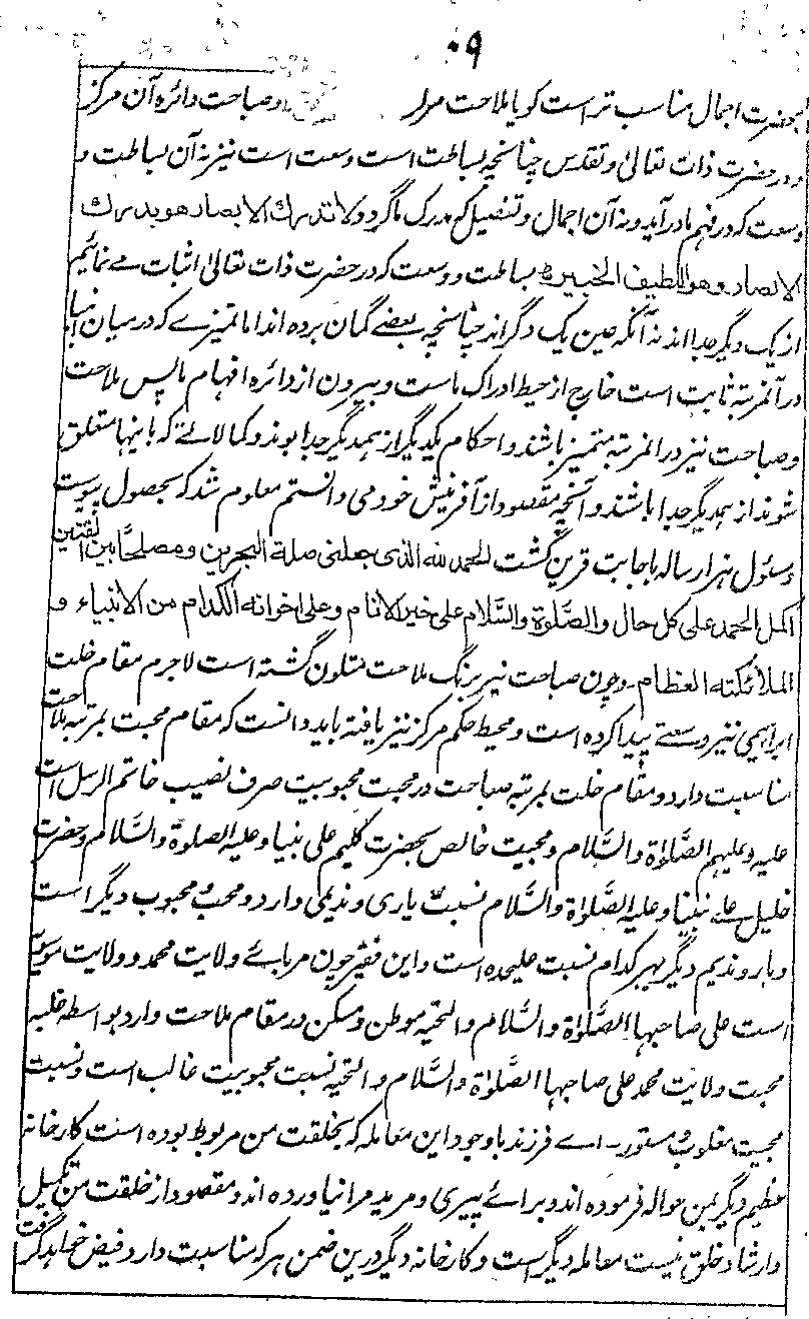 ۰۹
بحضرت اجمال مناسب تر است گویا ملاحت مرکز وصباحت دائره آن مرکز
و در حضرت ذات تعالی و تقدس چنانچه بساطت است وسعت است نیز نه آن بساطت و
وسعت که در فهم ما در آید و نه آن اجمال و تفصیل که مدرک ما گردد لا تدرك الابصار هو يدرك
الابصار وهو اللطيف الخبير بساطت و وسعت که در حضرت ذات تعالی اثبات مے نمائیم
از یک دیگر جدا اند نه آنکه عین یک دگر اند چنانچه بعضے گمان برده اند اما تمیزے که درمیان اینها
در آنمرتبه ثابت است خارج از حیط ادراک ماست و بیرون از دائره افهام ما پس ملاحت
و صباحت نیز در انمرتبه متمیز باشند و احکام یکدیگر از همدیگر جدا بوند و کمالاتے که باینها متعلق
شوند از همدیگر جدا باشند و آنچه مقصود از آفرینش خود می دانستم معلوم شد که بحصول پیوست
و مسئول هزار ساله باجابت قرین گشت الحمد لله الذی جعلنی صلة البحرين ومصلحًا بين الفئتين
اکمل الحمد علی کل حال والصَّلوٰة والسَّلام علی خير الانام وعلی اخوانه الکرام من الانبیاء و
الملائکته العظام۔ و چون صباحت نیز برنگ ملاحت متلون گشته است لاجرم مقام خلت
ابراهیمی نیز وسعتے پیدا کرده است و محیط حکم مرکز نیز یافته باید دانست که مقام محبت بمرتبه ملاحت
مناسبت دارد و مقام خلت بمرتبه صباحت در محبت محبوبیت صرف نصیب خاتم الرسل است
علیه وعلیهم الصَّلوٰة والسَّلام و محبیت خالص بحضرت کلیم علی نبینا وعلیه الصلوٰة والسَّلام وحضرت
خلیل علے نبینا وعلیه الصَّلوٰة والسَّلام نسبت یاری و ندیمی دارد و محب و محبوب دیگر است
و یار و ندیم دیگر بهر کدام نسبت علیحده است و این فقیر چون مرباے ولایت محمد و ولایت موسویہ
است علی صاحبها الصَّلوٰة والسَّلام والتحیه موطن و مسکن در مقام ملاحت دارد بواسطه غلبه
محبت ولایت محمد علی صاحبها الصَّلوٰة والسَّلام والتحیه نسبت محبوبیت غالب است و نسبت
محبیت مغلوب و مستور۔ اے فرزند باوجود این معامله که بخلقت من مربوط بوده است کارخانه
عظیم دیگر بمن حواله فرموده اند و براے پیری و مریدی مرا نیاورده اند و مقصود از خلقت من تکمیل
و ارشاد خلق نیست معامله دیگر است و کارخانه دیگر درین ضمن هر که مناسبت دارد فیض خواهد گرفت